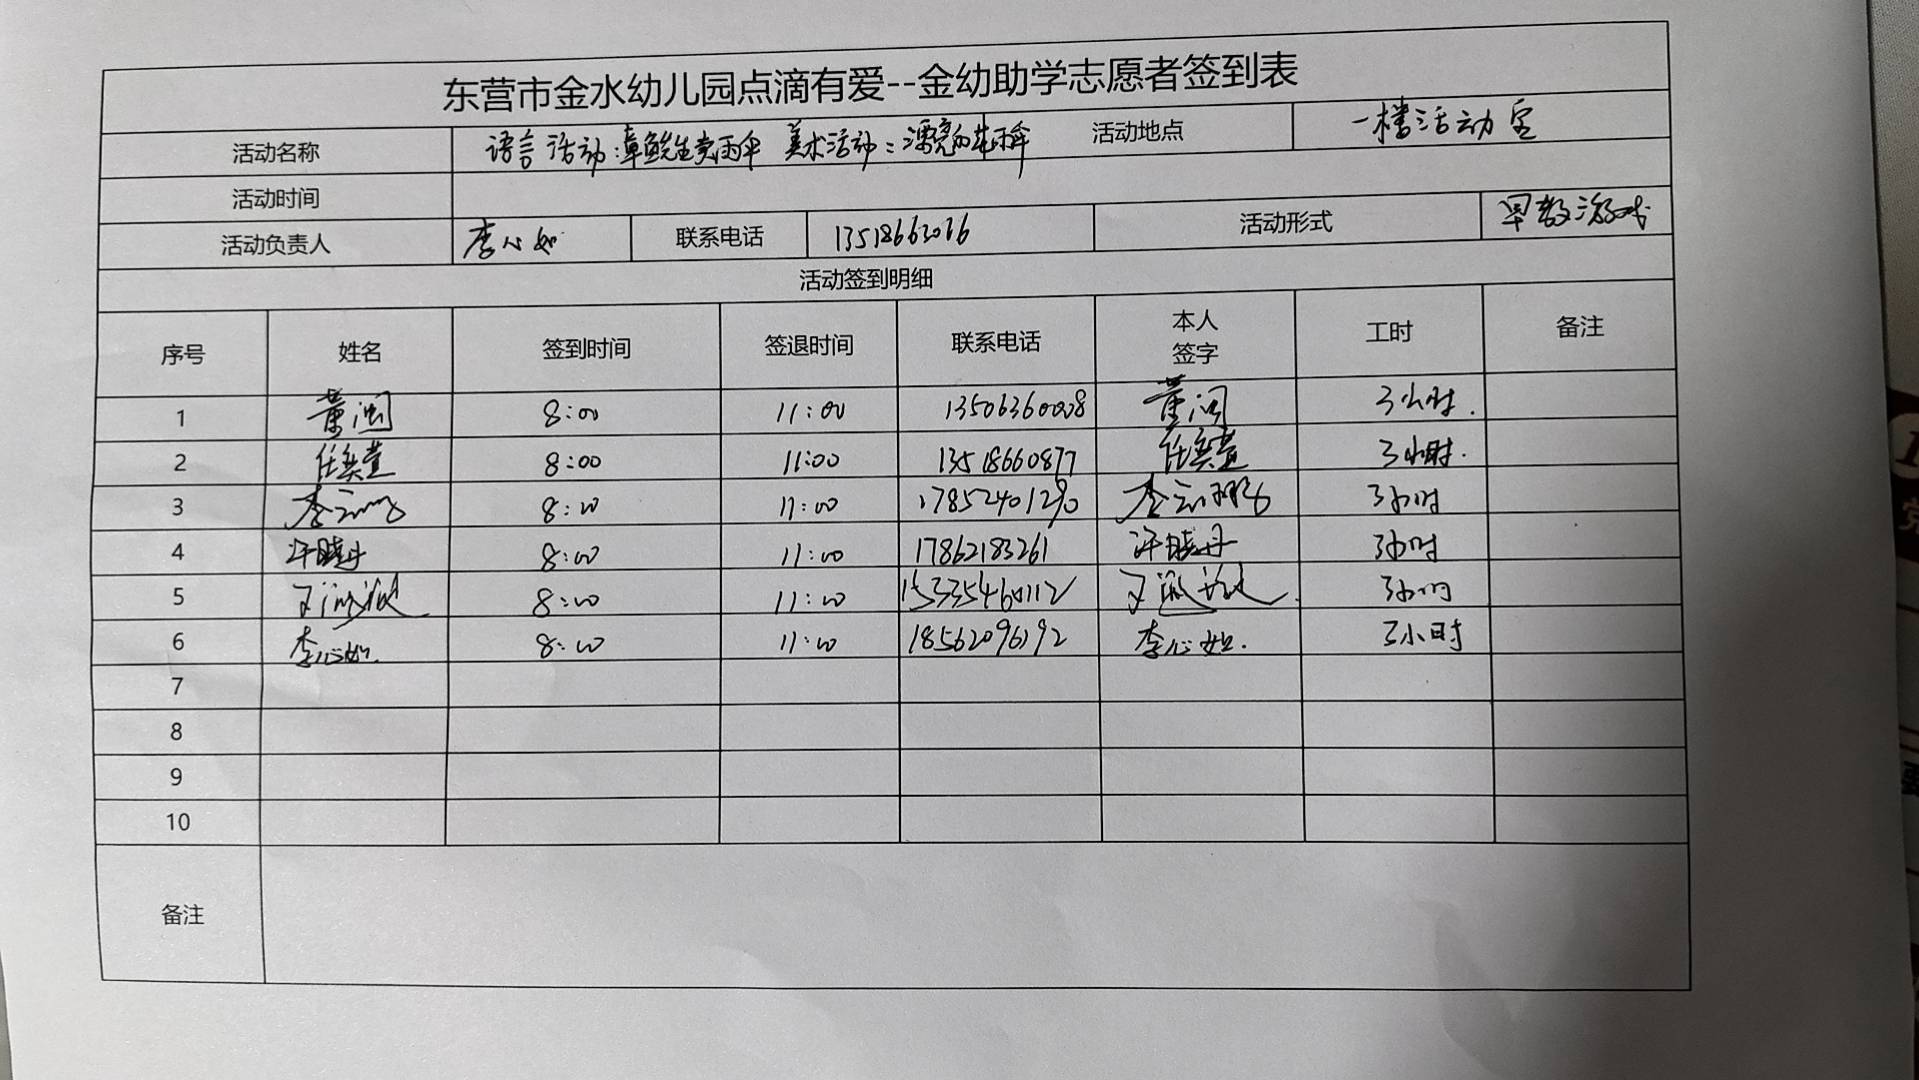 东营市金水幼儿园点滴有爱--金幼助学志愿者签到表
活动名称 语言活动:章鱼先生卖雨伞 美术活动:漂亮的花雨伞 活动地点 一楼活动室
活动时间
活动负责人 李心如 联系电话 13518663066 活动形式 早教游戏
活动签到明细
序号 姓名 签到时间 签退时间 联系电话 本人签字 工时 备注
1 董闽 8:00 11:00 13506360008 董闽 3小时.
2 任奕萱 8:00 11:00 13518660877 任奕萱 3小时.
3 李云鹏 8:00 11:00 17852401290 李云鹏 3小时
4 许晓丹 8:00 11:00 17862183261 许晓丹 3小时
5 8:00 11:00 15335460112 3小时
6 李心如. 8:00 11:00 18562096192 李心如. 3小时
7
8
9
10
备注